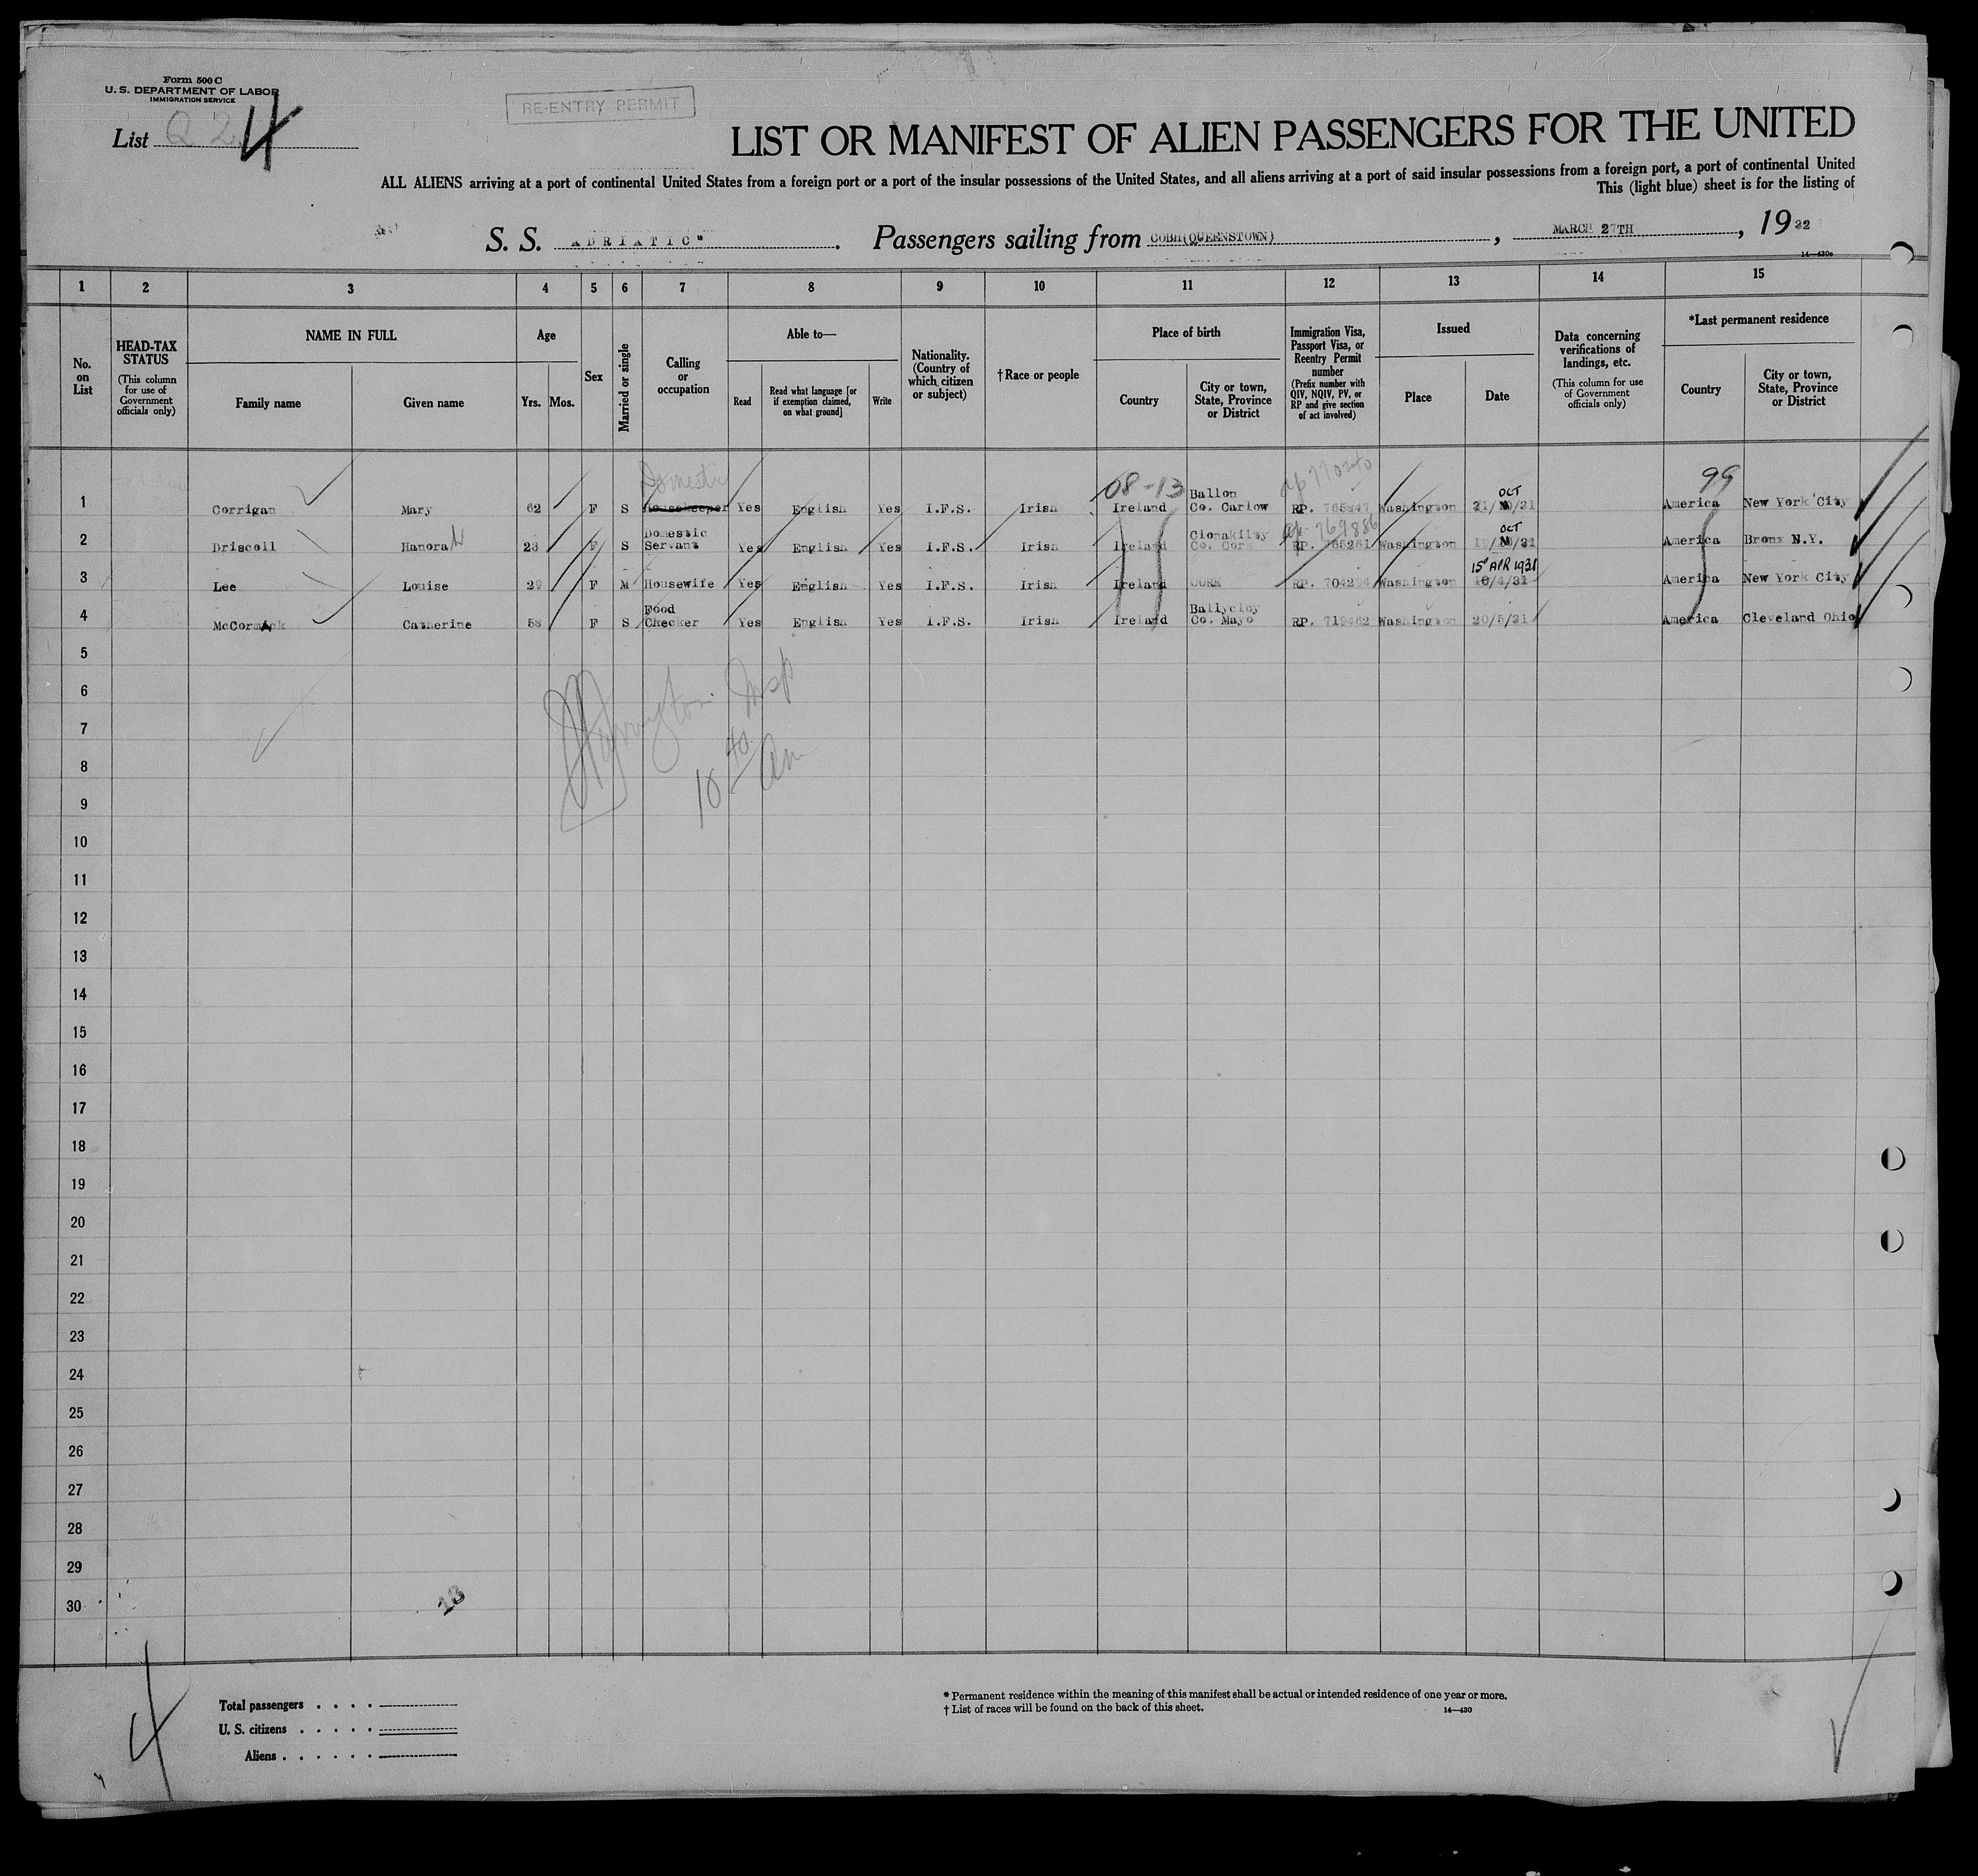 Form 500 C
U. S. DEPARTMENT OF LABOR
IMMIGRATION SERVICE
List Q 2 4
RE-ENTRY PERMIT
LIST OR MANIFEST OF ALIEN PASSENGERS FOR THE UNITED
ALL ALIENS arriving at a port of continental United States from a foreign port or a port of the insular possessions of the United States, and all aliens arriving at a port of said insular possessions from a foreign port, a port of continental United
This (light blue) sheet is for the listing of
S. S. ADRIATIC" . Passengers sailing from COBH(QUEENSTOWN) , MARCH 27TH , 19 32
14—430c
1 2 3 4 5 6 7 8 9 10 11 12 13 14 15
No. on List
HEAD-TAX STATUS
(This column for use of Government officials only)
NAME IN FULL
Family name
Given name
Age
Yrs.
Mos.
Sex
Married or single
Calling or occupation
Able to—
Read
Read what language [or if exemption claimed, on what ground]
Write
Nationality. (Country of which citizen or subject)
†Race or people
Place of birth
Country
City or town, State, Province or District
Immigration Visa, Passport Visa, or Reentry Permit number
(Prefix number with QIV, NQIV, PV, or RP and give section of act involved)
Issued
Place
Date
Data concerning verifications of landings, etc.
(This column for use of Government officials only)
*Last permanent residence
Country
City or town, State, Province or District
Domestic 08-13 Ballon OCT 99
1 Corrigan Mary 62 F S Housekeeper Yes English Yes I.F.S. Irish Ireland Co. Carlow RP. Washington America New York City
Domestic Clonakilty OCT
2 Driscoll Hanora 23 F S Servant Yes English Yes I.F.S. Irish Ireland Co. Cork RP. 765261 Washington America Bronx N.Y.
15 APR 1931
3 Lee Louise 29 F M Housewife Yes English Yes I.F.S. Irish Ireland CORK RP. 704294 Washington America New York City
Food
4 McCormack Catherine 58 F S Checker Yes English Yes I.F.S. Irish Ireland Co. Mayo RP. 719462 Washington 20/5/31 America Cleveland Ohio
5
6
7
8
Insp
10 40 am
9
10
11
12
13
14
15
16
17
18
19
20
21
22
23
24
25
26
27
28
29
30
13
4
Total passengers
U. S. citizens
Aliens
* Permanent residence within the meaning of this manifest shall be actual or intended residence of one year or more.
† List of races will be found on the back of this sheet.
14—430